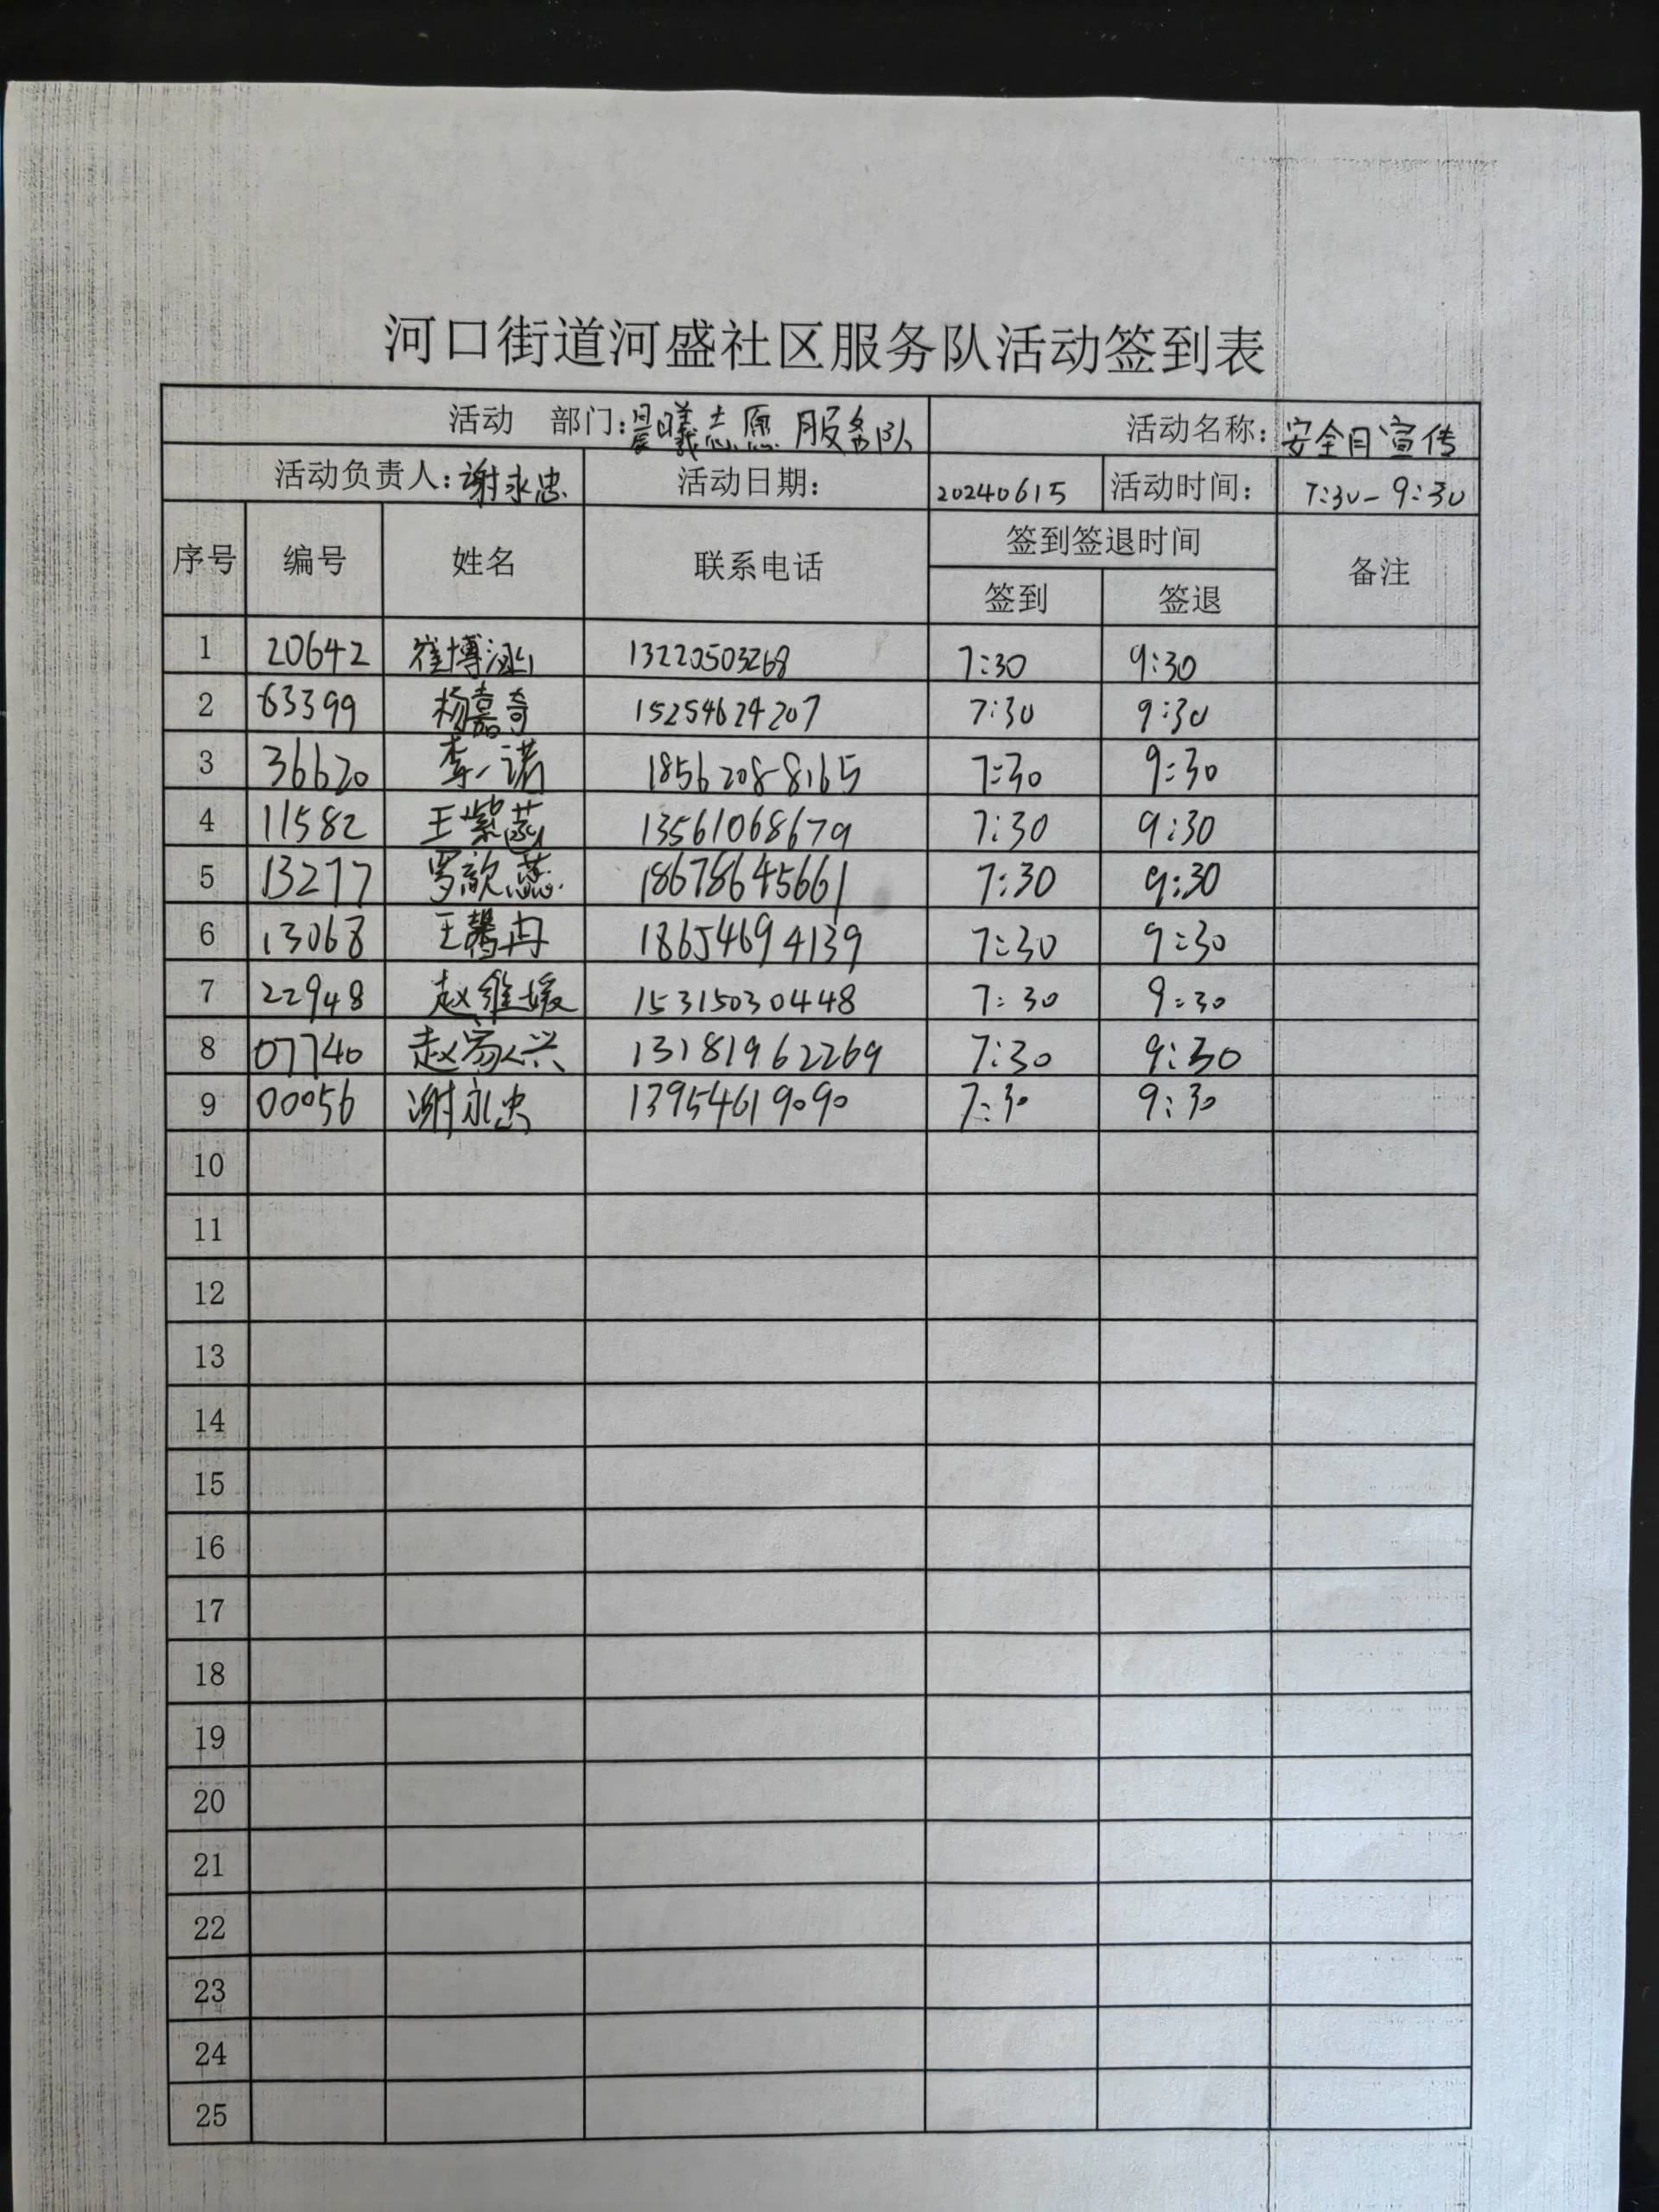 河口街道河盛社区服务队活动签到表
活动 部门:晨曦志愿服务队 活动名称:安全月宣传
活动负责人:谢永忠 活动日期: 20240615 活动时间: 7:30-9:30
序号 编号 姓名 联系电话 签到签退时间 备注
签到 签退
1 20642 崔博涵 13220503268 7:30 9:30
2 63399 杨嘉奇 15254624207 7:30 9:30
3 36620 李一诺 18562088165 7:30 9:30
4 11582 王紫菡 13561068679 7:30 9:30
5 13277 罗歆蕊 18678645661 7:30 9:30
6 13068 王馨冉 18654694139 7:30 9:30
7 22948 赵维媛 15315030448 7:30 9:30
8 07740 赵家兴 13181962269 7:30 9:30
9 00056 谢永忠 13954619090 7:30 9:30
10
11
12
13
14
15
16
17
18
19
20
21
22
23
24
25